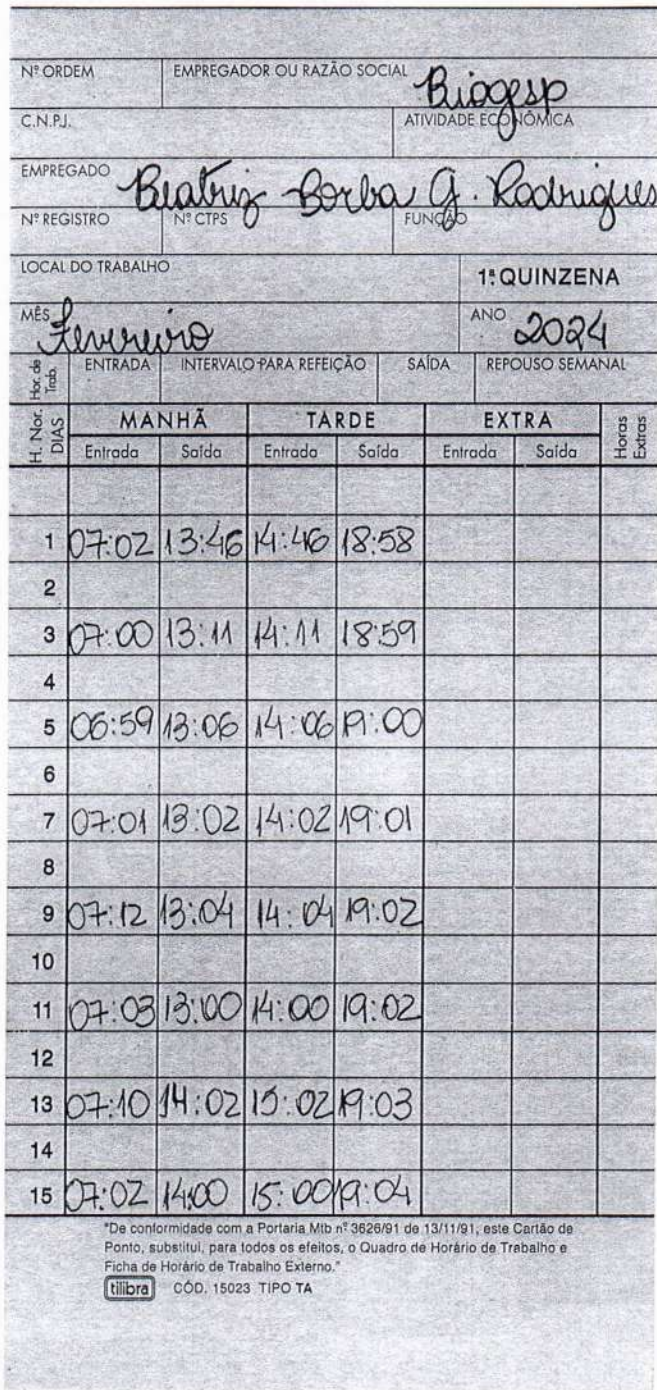 Nº ORDEM EMPREGADOR OU RAZÃO SOCIAL Biogesp
C.N.P.J. ATIVIDADE ECONÔMICA
EMPREGADO Beatriz Borba G. Rodrigues
Nº REGISTRO Nº CTPS FUNÇÃO
LOCAL DO TRABALHO 1ª QUINZENA
MÊS Fevereiro ANO 2024
Hor. de Trab. ENTRADA INTERVALO PARA REFEIÇÃO SAÍDA REPOUSO SEMANAL
H. Nor. DIAS MANHÃ TARDE EXTRA Horas Extras
Entrada Saída Entrada Saída Entrada Saída
1 07:02 13:46 14:46 18:58
2
3 07:00 13:11 14:11 18:59
4
5 06:59 13:06 14:06 19:00
6
7 07:01 13:02 14:02 19:01
8
9 07:12 13:04 14:04 19:02
10
11 07:03 13:00 14:00 19:02
12
13 07:10 14:02 15:02 19:03
14
15 07:02 14:00 15:00 19:04
"De conformidade com a Portaria Mtb nº 3626/91 de 13/11/91, este Cartão de
Ponto, substitui, para todos os efeitos, o Quadro de Horário de Trabalho e
Ficha de Horário de Trabalho Externo."
tilibra CÓD. 15023 TIPO TA